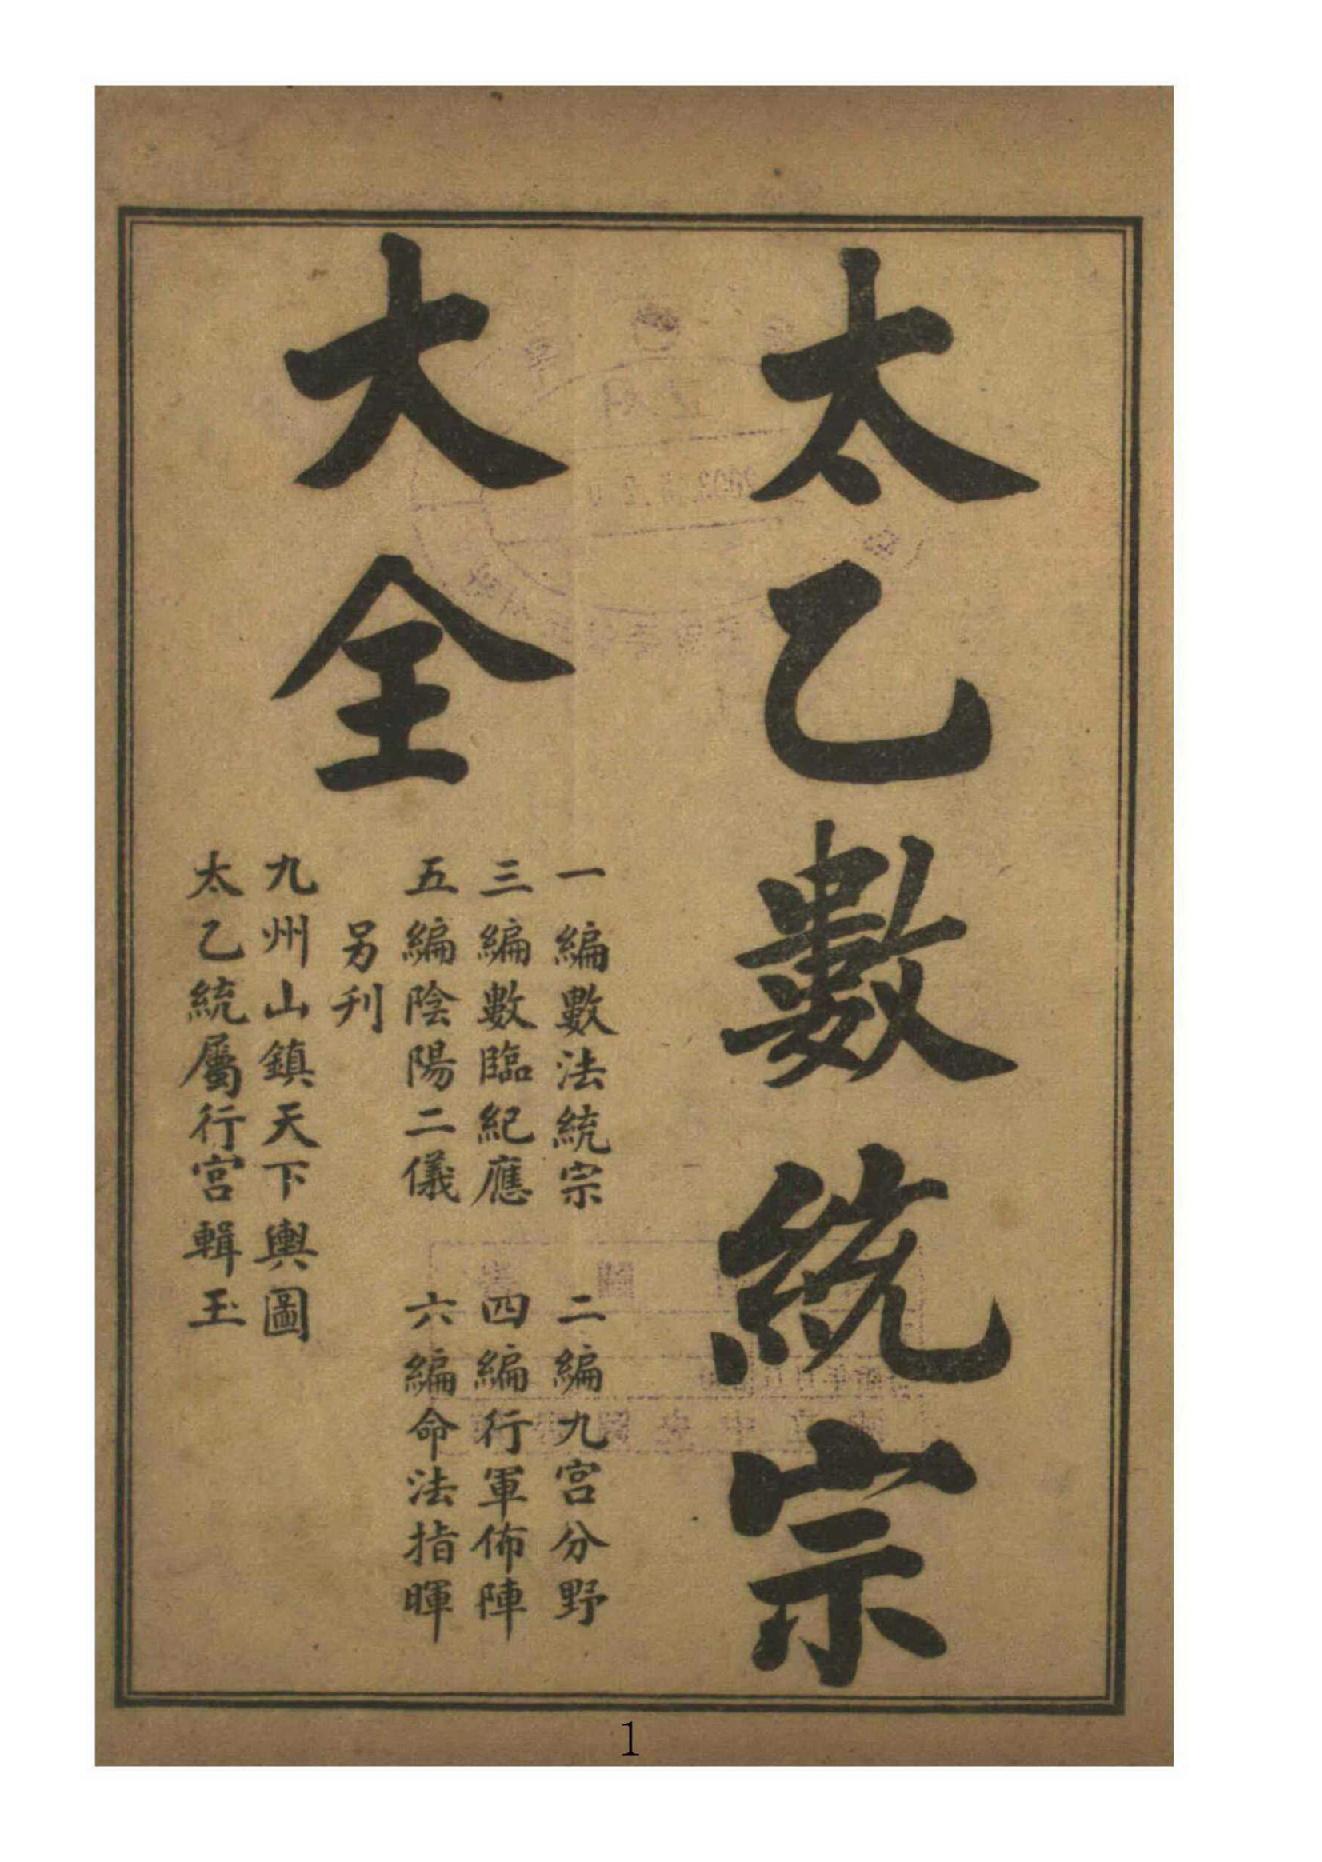 太乙數統宗
大全
一編數法統宗 二編九宮分野
三編數臨紀應 四編行軍佈陣
五編陰陽二儀 六編命法指暉
另刋
九州山鎮天下輿圖
太乙統屬行宮輯玉
1